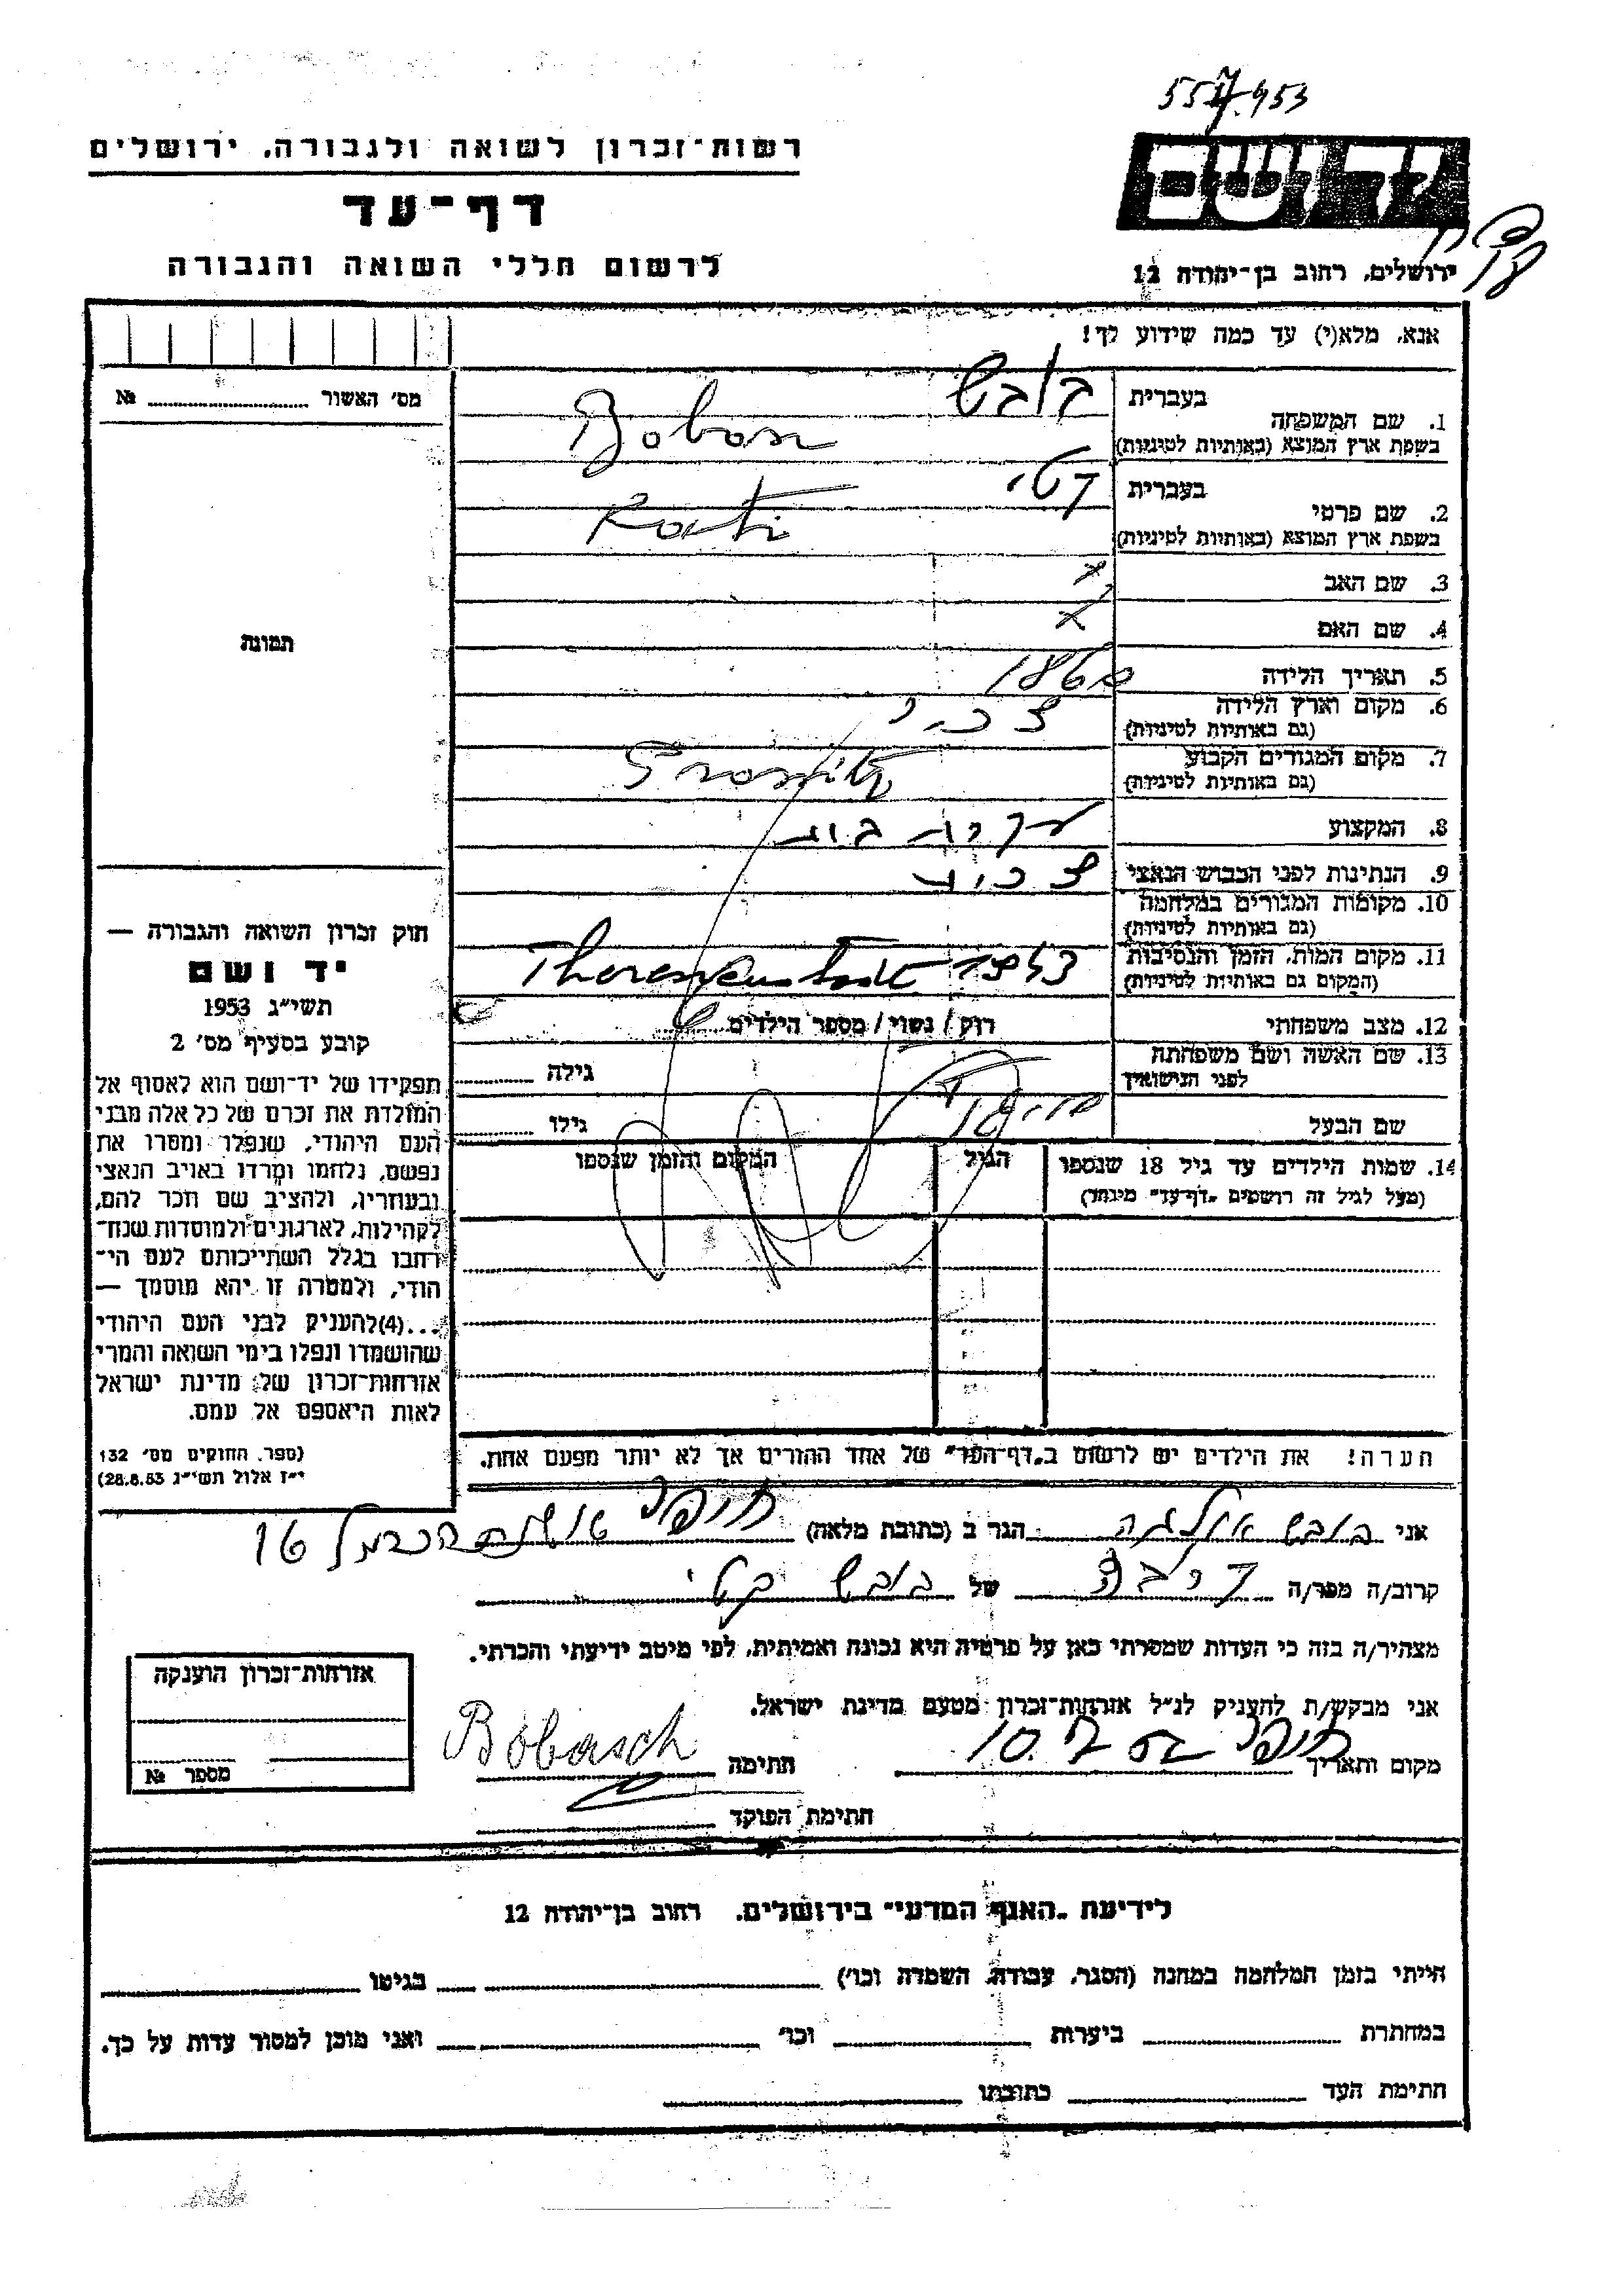 557.953
רשות־זכרון לשואה ולגבורה, ירושלים
דף־עד
לרשום חללי השואה והגבורה
יד ושם
ירושלים, רחוב בן־יהודה 12
אנא, מלא(י) עד כמה שידוע לך!
מס' האשור № 
תמונה
חוק זכרון השואה והגבורה —
יד ושם
תשי״ג 1953
קובע בסעיף מס' 2
תפקידו של יד־ושם הוא לאסוף אל
המולדת את זכרם של כל אלה מבני
העם היהודי, שנפלו ומסרו את
נפשם, נלחמו ומרדו באויב הנאצי
ובעוזריו, ולהציב שם וזכר להם,
לקהילות, לארגונים ולמוסדות שנח־
רבו בגלל השתייכותם לעם הי־
הודי, ולמטרה זו יהא מוסמך —
...(4)להעניק לבני העם היהודי
שהושמדו ונפלו בימי השואה והמרי
אזרחות־זכרון של מדינת ישראל
לאות היאספם אל עמם.
(ספר החוקים מס' 132
י״ז אלול תשי״ג 28.8.53)
1. שם המשפחה
בעברית בובש
בשפת ארץ המוצא (באותיות לטיניות)
2. שם פרטי
בעברית קטי
בשפת ארץ המוצא (באותיות לטיניות) Kati
3. שם האב
4. שם האם
5. תאריך הלידה 1860
6. מקום וארץ הלידה
(גם באותיות לטיניות)
7. מקום המגורים הקבוע
(גם באותיות לטיניות)
8. המקצוע עקרת בית
9. הנתינות לפני הכבוש הנאצי
10. מקומות המגורים במלחמה
(גם באותיות לטיניות)
11. מקום המות, הזמן והנסיבות
(המקום גם באותיות לטיניות) Theresienstadt 1943
12. מצב משפחתי רווק / נשוי / מספר הילדים
13. שם האשה ושם משפחתה
לפני הנישואין גילה
שם הבעל גילו
14. שמות הילדים עד גיל 18 שנספו הגיל המקום והזמן שנספו
(מעל לגיל זה רושמים „דף־עד״ מיוחד)
הערה! את הילדים יש לרשום ב„דף־העד״ של אחד ההורים אך לא יותר מפעם אחת.
אני בובש אולגה הגר ב (כתובת מלאה) חיפה
קרוב/ה מפר/ה קרבה של בובש קטי
מצהיר/ה בזה כי העדות שמסרתי כאן על פרטיה היא נכונה ואמיתית, לפי מיטב ידיעתי והכרתי.
אני מבקש/ת להעניק לנ״ל אזרחות־זכרון מטעם מדינת ישראל.
מקום ותאריך חיפה חתימה Bobasch
חתימת הפוקד
אזרחות־זכרון הוענקה
מספר №
לידיעת „האגף המדעי״ בירושלים, רחוב בן־יהודה 12
הייתי בזמן המלחמה במחנה (הסגר, עבודה, השמדה וכו') בגיטו
במחתרת ביערות וכו' ואני מוכן למסור עדות על כך.
חתימת העד כתובתו